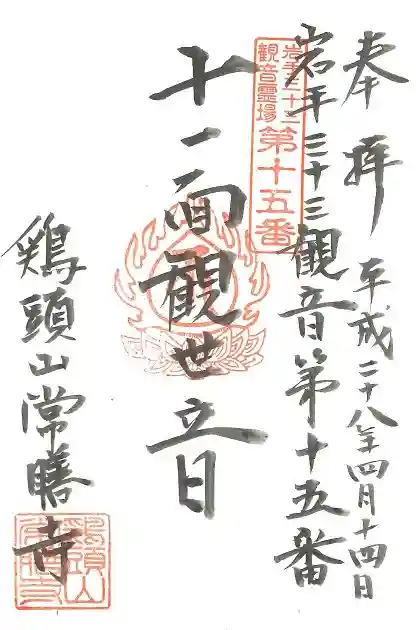 奉拝 平成二十八年四月十四日
岩手三十三観音第十五番
岩手三十三
観音霊場
第十五番
十一面観世音
鶏頭山常膳寺